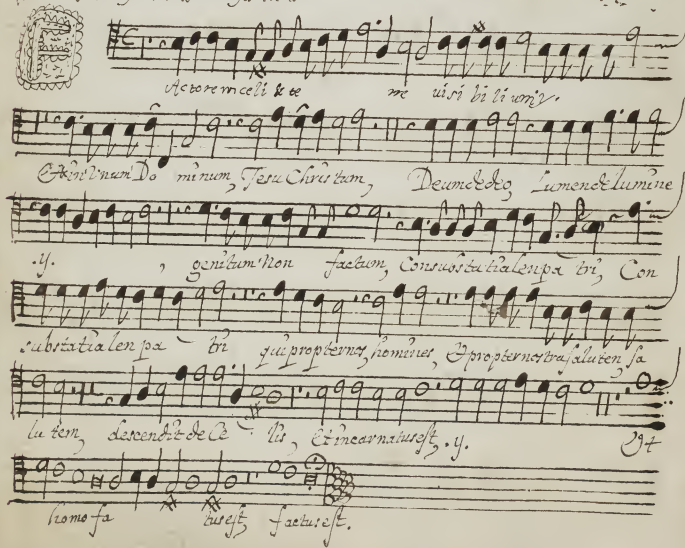 F
Actorem celi & te re uisi bi li um ij.
Et in unum Do minum, Jesu Christum, Deum de deo, Lumen de lumine
.ij. , genitum Non factum, Consubstatialen pa tri, Con
substatialen pa tri qui propter nos, homines, & propter nostra saluten, sa
lu tem, descendit de Ce lis, Et incarnatus est, .ij. Et
homo fa tus est, factus est.